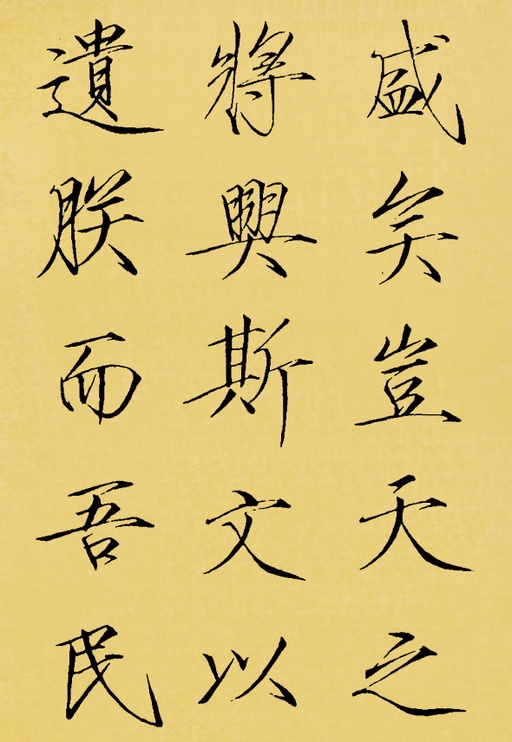 盛矣豈天之
將興斯文以
遺朕而吾民